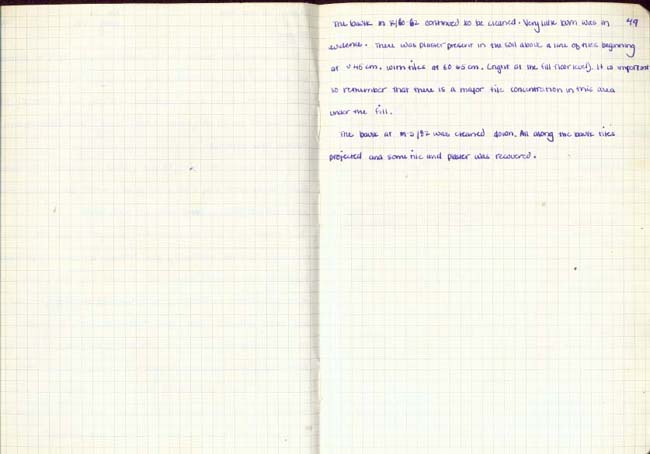 49
The baulk in K/60-62 continued to be cleaned. Very little burn was in
evidence. There was plaster present in the soil above a line of tiles beginning
at 45 cm. with tiles at 60 65 cm. (right at the fill floor level). It is important
to remember that there is a major tile concentration in this area
under the fill.
The baulk at was cleaned down. All along the baulk tiles
projected and some tile and plaster was recovered.